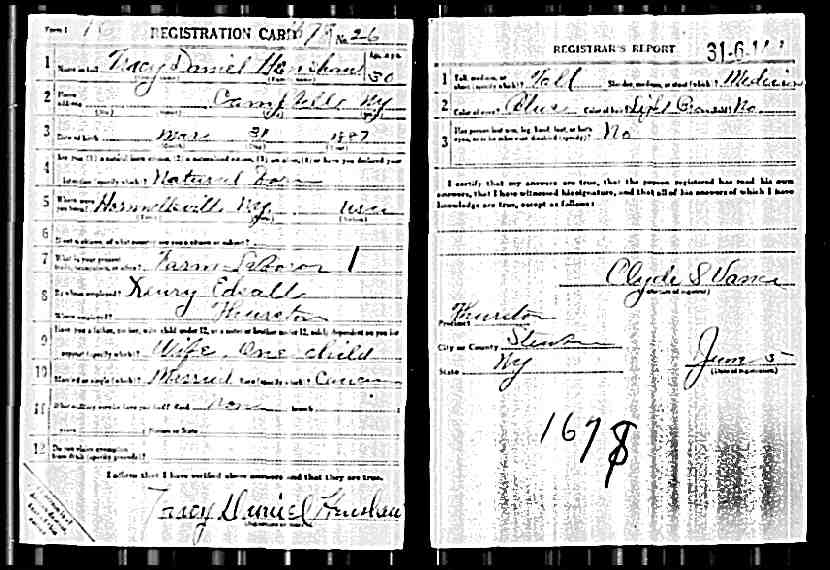 Form 1 REGISTRATION CARD No. 26
1 Name in full Tracy Daniel Henshaw Age, in yrs. 30
2 Home address Campbells NY
3 Date of birth Mar 31 1887
4 Are you (1) a natural born citizen, (2) a naturalized citizen, (3) an alien, (4) or have you declared your
intention (specify which)? Natural Born
5 Where were you born? Hornellsville NY. USA
6 If not a citizen, of what country are you a citizen or subject?
7 What is your present trade, occupation, or office? Farm Labor 1
8 By whom employed? Henry Edsall
Where employed? Thurston
9 Have you a father, mother, wife, child under 12, or a sister or brother under 12, solely dependent on you for
support (specify which)? Wife, One child
10 Married or single (which)? Married Race (specify which)?
11 What military service have you had? Rank None branch
years Nation or State
12 Do you claim exemption from draft (specify grounds)?
I affirm that I have verified above answers and that they are true.
Tracy Daniel Henshaw
REGISTRAR'S REPORT
1 Tall, medium, or short (specify which)? Tall Slender, medium, or stout (which)? Medium
2 Color of eyes? Blue Color of hair? Light Brown Bald? No
3 Has person lost arm, leg, hand, foot, or both eyes, or is he otherwise disabled (specify)? No
I certify that my answers are true, that the person registered has read his own
answers, that I have witnessed his signature, and that all of his answers of which I have
knowledge are true, except as follows:
Clyde S
(Signature of registrar)
Precinct Thurston
City or County Steuben
State NY
June 5
(Date of registration)
1678